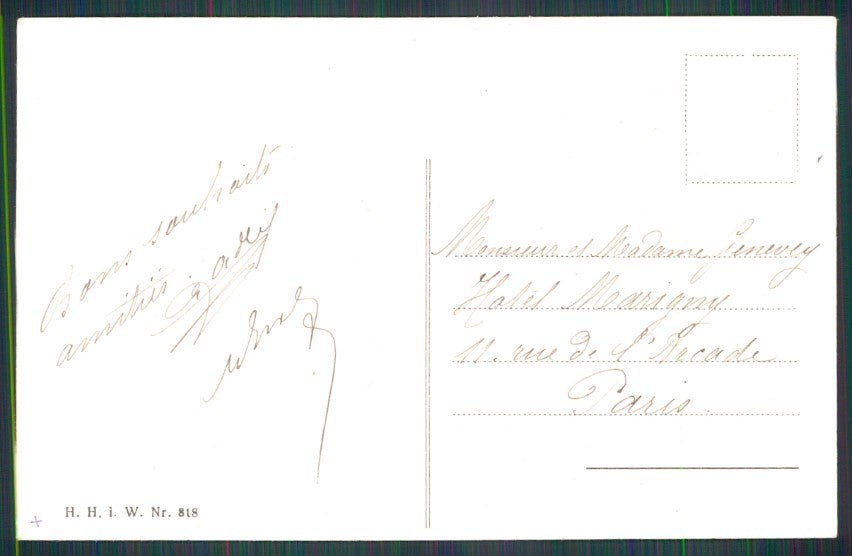 Bons souhaits
amitiés.
Monsieur et Madame Genevey
Hotel Marigny
11. rue de l'Arcade
Paris.
H. H. i. W. Nr. 818